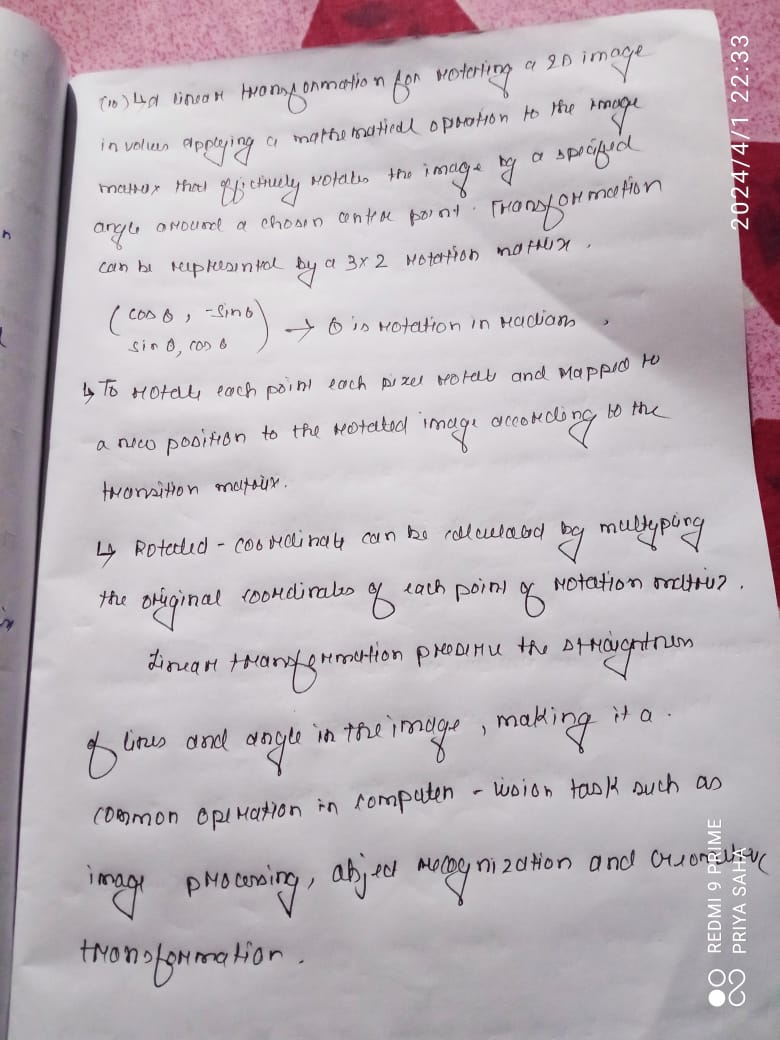 (10) ↳ A linear transformation for rotering a 2D image
involves applying a mathematical opration to the image
matrix that effictively rotates the image by a specified
angle around a chosen centre point. Transformation
can be represental by a 3x2 rotation matrix.
(cos θ, -sin θ
sin θ, cos θ) → θ is rotation in radians,
↳ To each point each pixel and mapped to
a new position to the rotated image according to the
transition matrix.
↳ Rotated - coordinate can be calculated by multyping
the original coordinates of each point of rotation matrix.
Linear transformation preserve the straightness
of lines and angle in the image, making it a.
common operation in computer - vision task such as
image processing, abject recognization and
transformation.
2024/4/1 22:33
REDMI 9 PRIME
PRIYA SAHA